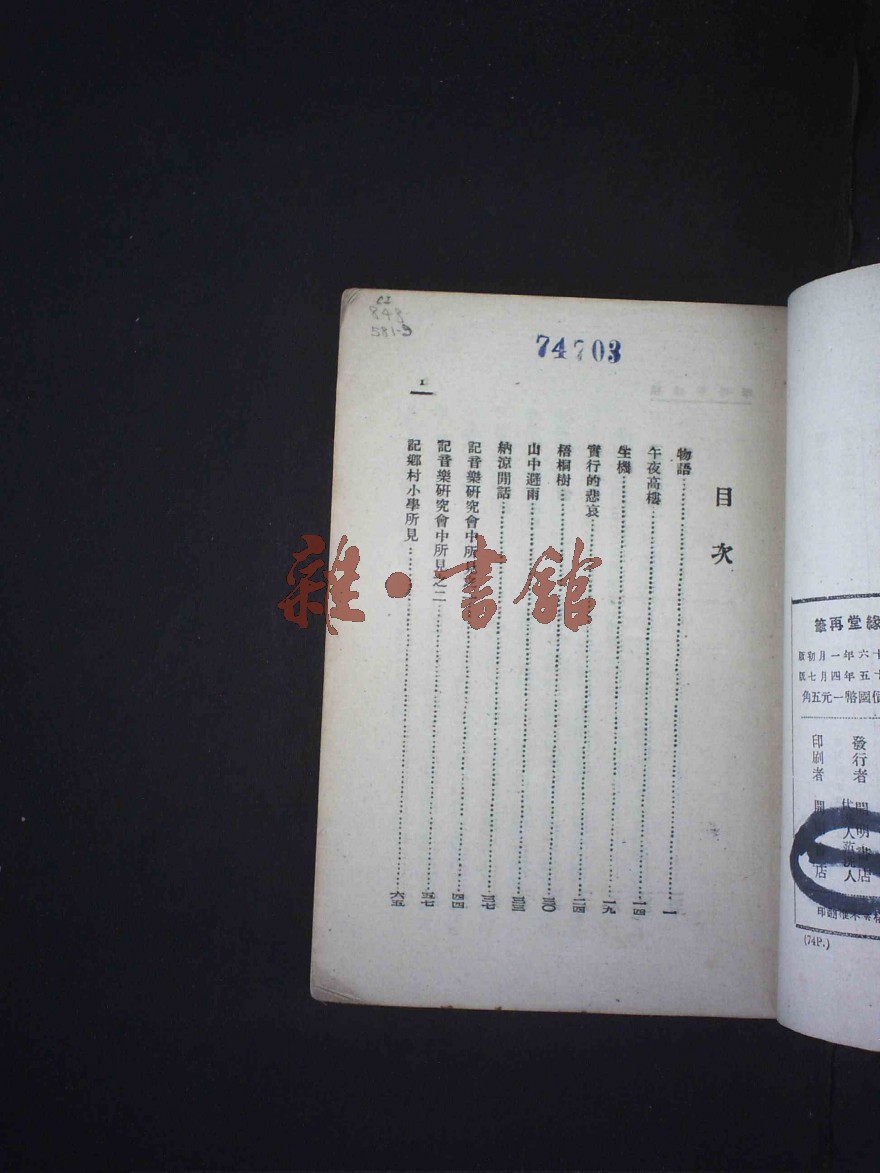 C2
848
581-3
74703
1
目次
物語…一
午夜高樓…一四
生機…一九
實行的悲哀…二四
梧桐樹…三〇
山中避雨…三三
納涼閒話…三七
記音樂研究會中所見之一…四四
記音樂研究會中所見之二…五七
記鄉村小學所見…六五
雜·書館
緣堂再筆
十六年一月初版
十五年四月七版
價國幣一元五角
發行者
印刷者
(74P.)